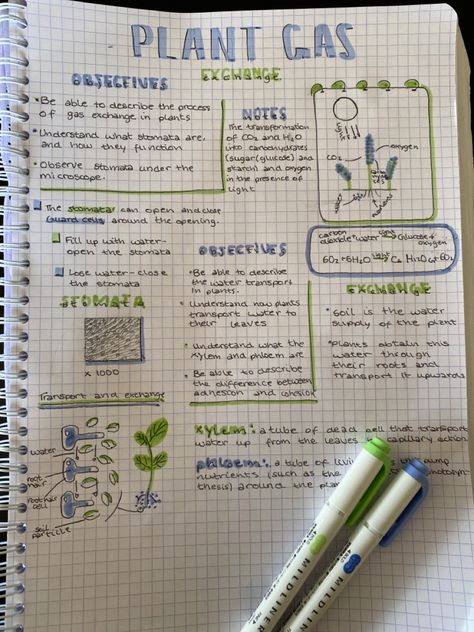 PLANT GAS
EXCHANGE
OBJECTIVES
• Be able to describe the process
of gas exchange in plants
• Understand what stomata are,
and how they function
• Observe stomata under the
microscope.
NOTES
The transformation
of CO2 and H2O
into carboohydrates
(sugar(glucose) and
starch) and oxygen
in the presence of
light
light
CO2
oxygen
water
carbon
dioxide+water light Glucose+
oxygen
6O2+6H2O light C6 H12O6+6O2
The stomata can open and close
Guard cells around the opening.
Fill up with water-
open the stomata
Lose water-close
the stomata
STOMATA
x 1000
OBJECTIVES
• Be able to describe
the water transport
in plants.
• Understand how plants
transport water to
their leaves
• Understand what the
xylem and phloem are.
• Be able to describe
the difference between
adhesion and cohesion
EXCHANGE
• soil is the water
supply of the plant
• Plants obtain this
water through
their roots and
transport it upwards
Transport and exchange
water
root
hair
root hair
cell
soil
particle
xylem: a tube of dead cell that transport
water up from the leaves capillary action
phloem: a tube of
nutrients (such as
thesis) around the
MILDLINER
MILDLINER